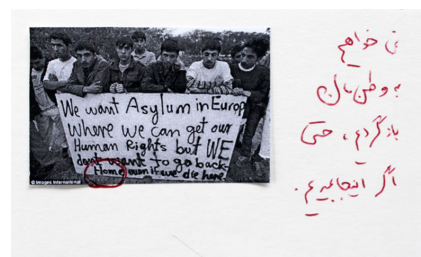 We want Asylum in Europ
where we can get our
Human Rights but WE
dont want to go back
Home even if we die here
© Images International
نمی خواهیم
به وطن مان
بازگردیم، حتی
اگر اینجا بمیریم.